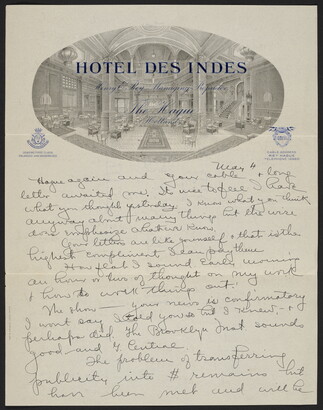 HOTEL DES INDES
The Hague
(Holland)
May 4
Hague again and your cable & long
letter awaited me. It was to feel I have
what you thought yesterday. I know what you think
anyway about many things but the wise
does emphasize what we know.
Your letters are like yourself & that is the
highest compliment I can pay them
How glad I sound early morning
an hour or two of thought on my work
& how to work things out!
The show your news is confirmatory
I wont say I told you so but I knew, &
perhaps did. The Brooklyn Inst sounds
good and G. Central.
The problem of transferring
publicity into # remains but
has been met and will be